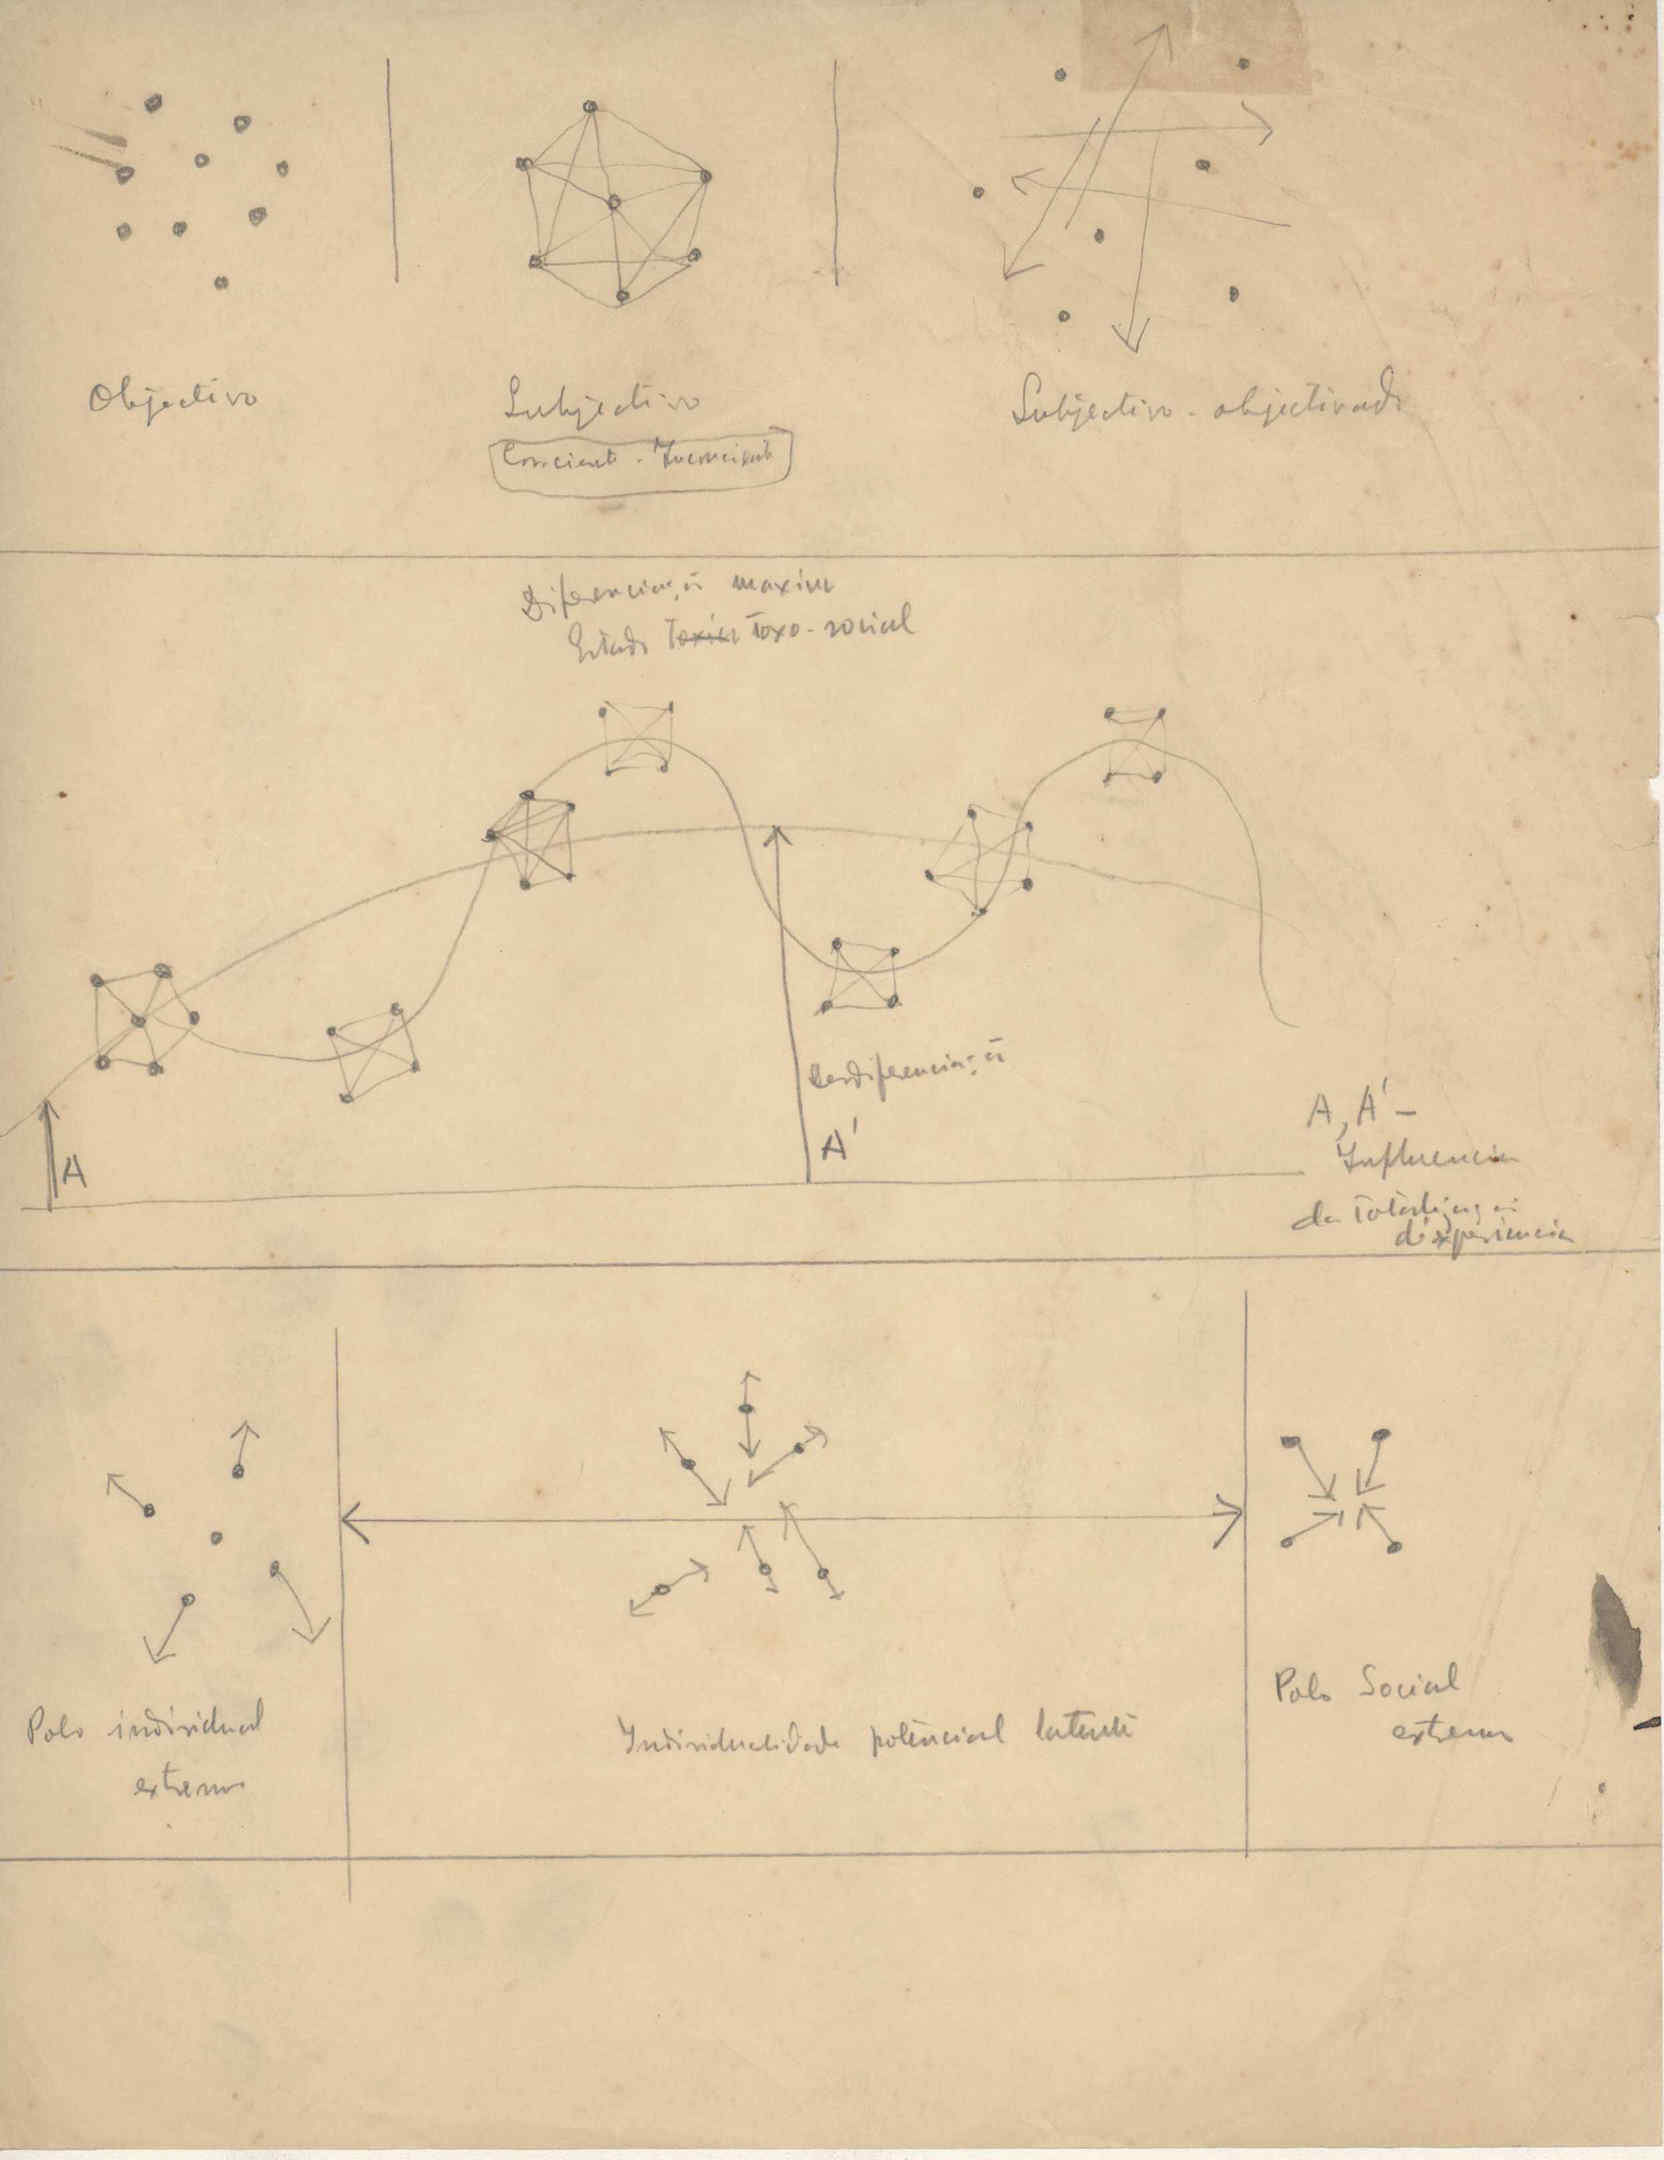 Objectivo
Subjectivo
Subjectivo - objectivado
Consciente - Inconsciente
Diferenciação maxima
Estado Toxo-social
Desdiferenciação
A
A'
A, A' -
Influencia
da Totalização
d'experiencia
Polo individual
extremo
Individualidade potencial latente
Polo Social
extremo